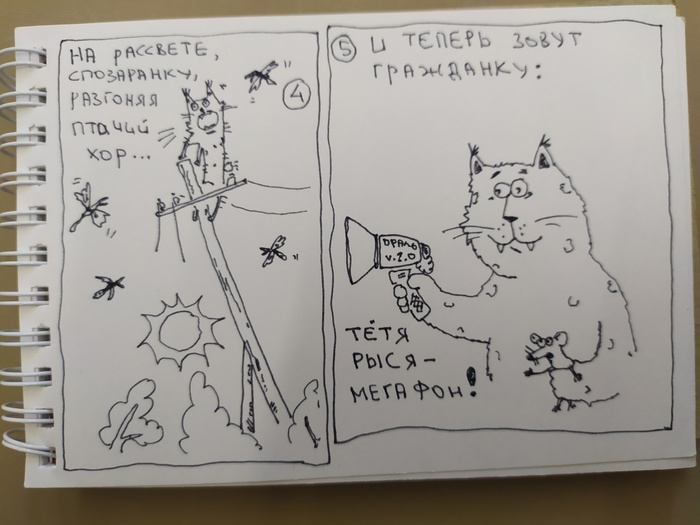 НА РАССВЕТЕ,
СПОЗАРАНКУ,
РАЗГОНЯЯ
ПТАЧИЙ
ХОР...
4
5 И ТЕПЕРЬ ЗОВУТ
ГРАЖДАНКУ:
ОРАЛЬ
V.2.0
ТЁТЯ
РЫСЯ-
МЕГАФОН!